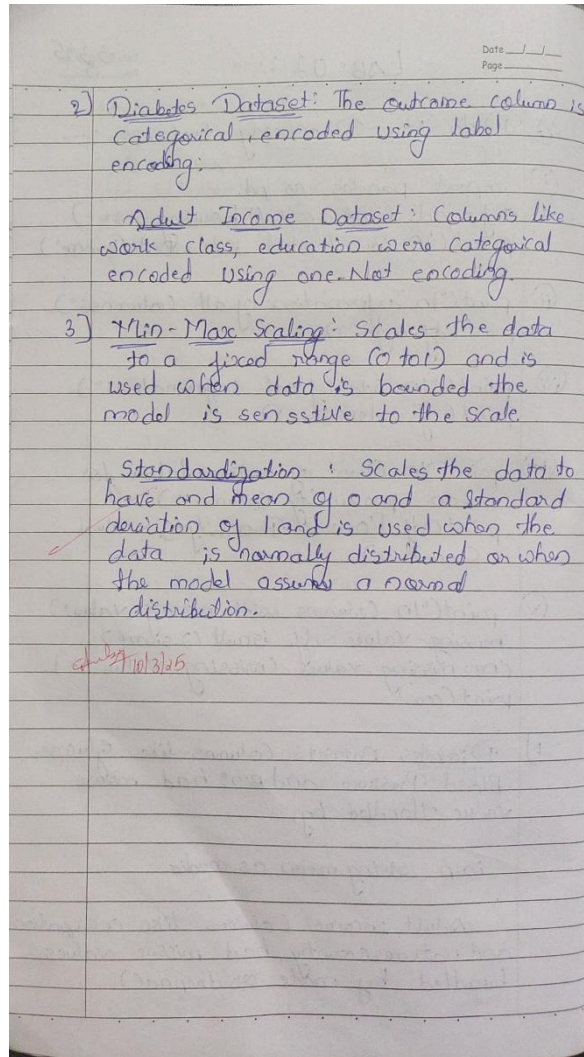 Date __/__/__
Page ____
2] Diabetes Dataset: The outcome column is
categorical, encoded using label
encoding:
Adult Income Dataset: Columns like
work class, education were categorical
encoded using one-Not encoding.
3] Min-Max Scaling: Scales the data
to a fixed range (0 to 1) and is
used when data is bounded the
model is sensstive to the scale.
Standardization: Scales the data to
have and mean of 0 and a standard
deviation of 1 and is used when the
data is normally distributed or when
the model assums a normal
distribution.
10/3/25